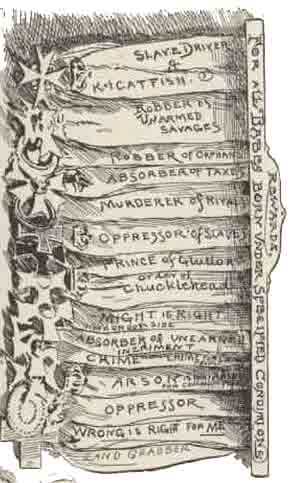 SLAVE DRIVER
&
ROBBER OF
UNARMED
SAVAGES
ROBBER OF ORPHANS
ABSORBER OF TAXES
MURDERER OF RIVALS
OPPRESSOR OF SLAVES
PRINCE of Gluttons
order of
Chuckleheads
MIGHT IS RIGHT
ABSORBER OF UNEARNED
CRIME
ARSON
OPPRESSOR
WRONG IS RIGHT FOR ME
LAND GRABBER
REWARDS
FOR ALL BABIES BORN UNDER SPECIFIED CONDITIONS